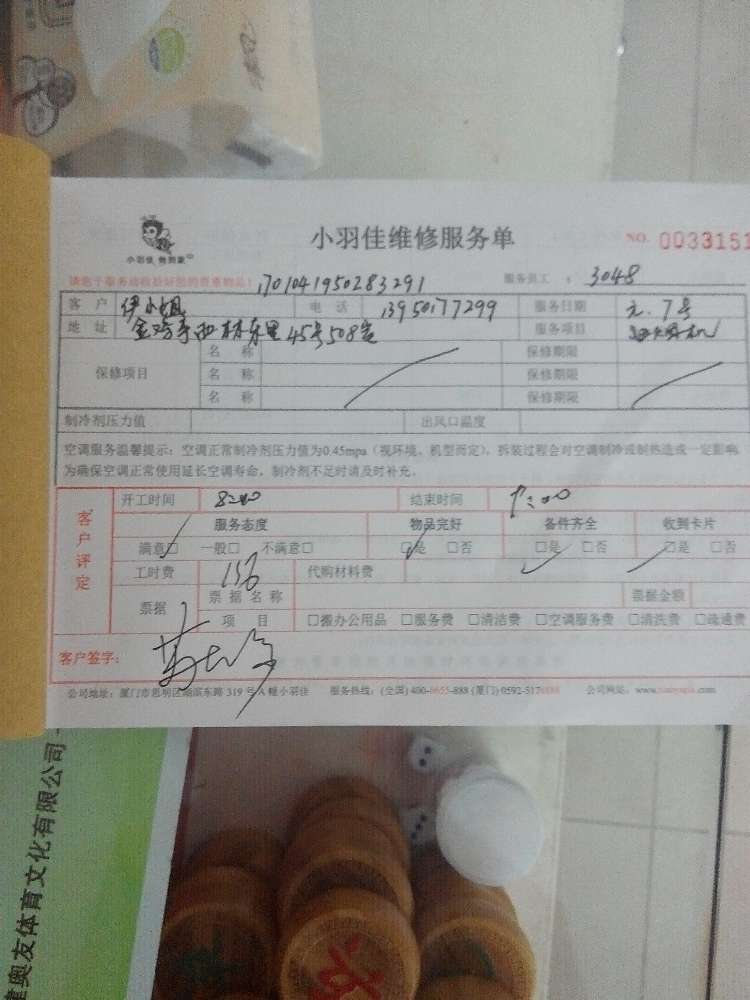 小羽佳维修服务单
NO. 0033151
小羽佳
请您于服务前收拾好您的贵重物品! 170104195028329 1 服务员工 : 3048
客 户 伊小姐 电 话 13950177299 服务日期 元.7号
地 址 西林东里45号508室 服务项目
保修项目 名 称 保修期限
名 称 保修期限
名 称 保修期限
制冷剂压力值 出风口温度
空调服务温馨提示: 空调正常制冷剂压力值为0.45mpa (视环境、机型而定), 拆装过程会对空调制冷或制热造成一定影响
为确保空调正常使用延长空调寿命, 制冷剂不足时请及时补充。
客户评定
开工时间 8:00 结束时间 9:00
服务态度 物品完好 备件齐全 收到卡片
满意□ 一般□ 不满意□ □是 □否 □是 □否 □是 □否
工时费 156 代购材料费
票据 票 据 名 称 票据金额
项 目 □搬办公用品 □服务费 □清洁费 □空调服务费 □清洗费 □疏通费
客户签字:
公司地址: 厦门市思明区湖滨东路 319 号 A 幢小羽佳 服务热线: (全国) 400-6655-888 (厦门) 0592-517 公司网站:
奥友体育文化有限公司